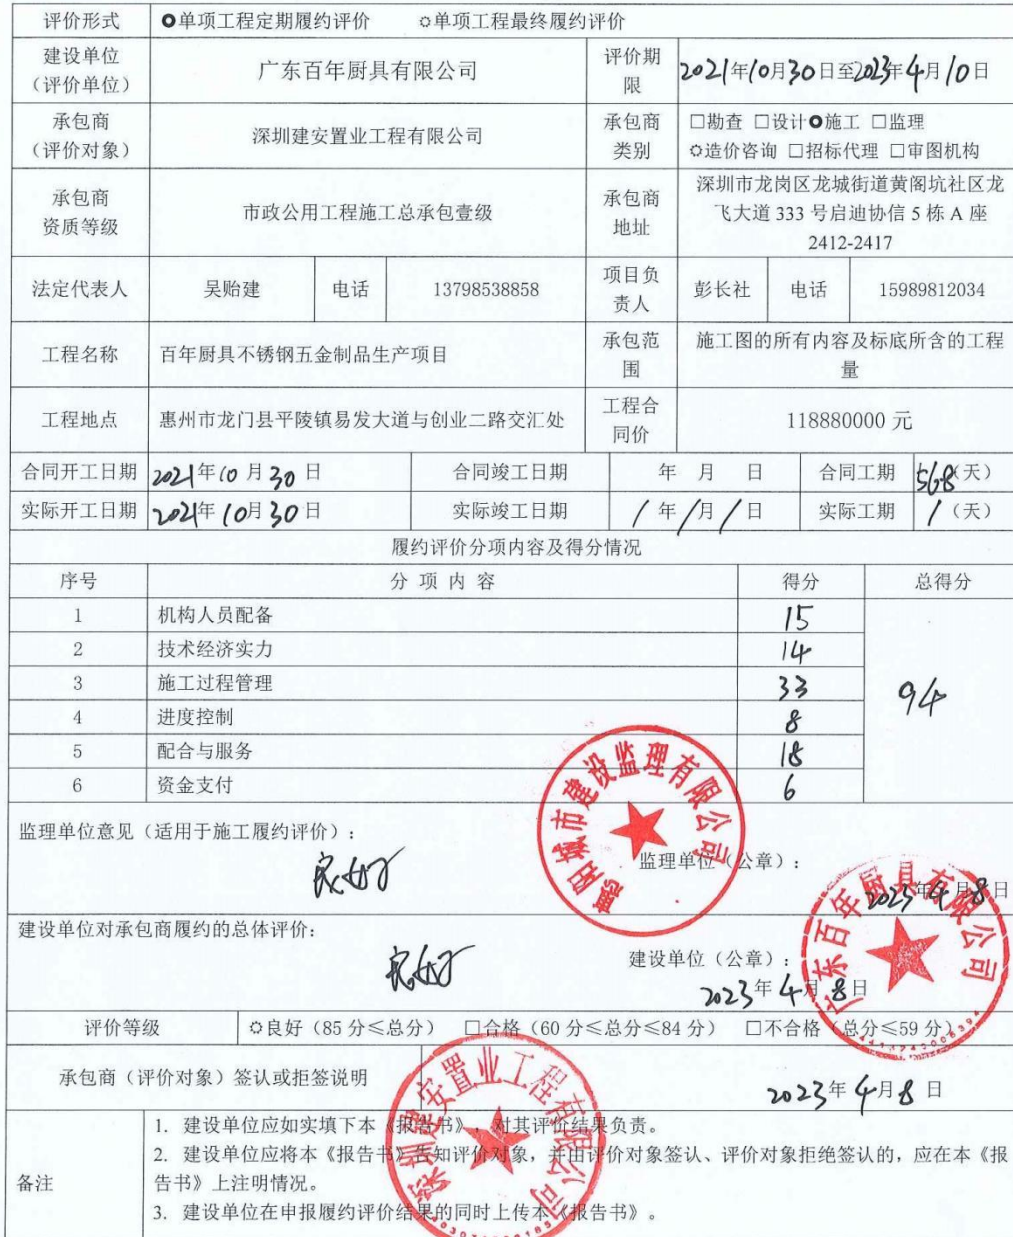 评价形式 单项工程定期履约评价 单项工程最终履约评价
建设单位
（评价单位）
广东百年厨具有限公司
评价期
限
2021年10月30日至2023年4月10日
承包商
（评价对象）
深圳建安置业工程有限公司
承包商
类别
□勘查 □设计 施工 □监理
造价咨询 □招标代理 □审图机构
承包商
资质等级
市政公用工程施工总承包壹级
承包商
地址
深圳市龙岗区龙城街道黄阁坑社区龙
飞大道 333 号启迪协信 5 栋 A 座
2412-2417
法定代表人 吴贻建 电话 13798538858
项目负
责人
彭长社 电话 15989812034
工程名称 百年厨具不锈钢五金制品生产项目
承包范
围
施工图的所有内容及标底所含的工程
量
工程地点 惠州市龙门县平陵镇易发大道与创业二路交汇处
工程合
同价
118880000 元
合同开工日期 2021年10月30日 合同竣工日期 年 月 日 合同工期 568（天）
实际开工日期 2021年10月30日 实际竣工日期 /年/月/日 实际工期 /（天）
履约评价分项内容及得分情况
序号 分 项 内 容 得分 总得分
1 机构人员配备 15
2 技术经济实力 14
3 施工过程管理 33
94
4 进度控制 8
5 配合与服务 18
6 资金支付 6
监理单位意见（适用于施工履约评价）：
良好
监理单位（公章）：
2023年4月8日
惠阳城市建设监理有限公司
建设单位对承包商履约的总体评价：
良好
建设单位（公章）：
2023年4月8日
广东百年厨具有限公司
评价等级 良好（85 分≤总分） □合格（60 分≤总分≤84 分） □不合格（总分≤59 分）
承包商（评价对象）签认或拒签说明
2023年4月8日
深圳建安置业工程有限公司
备注
1. 建设单位应如实填下本《报告书》，对其评价结果负责。
2. 建设单位应将本《报告书》告知评价对象，并由评价对象签认、评价对象拒绝签认的，应在本《报
告书》上注明情况。
3. 建设单位在申报履约评价结果的同时上传本《报告书》。